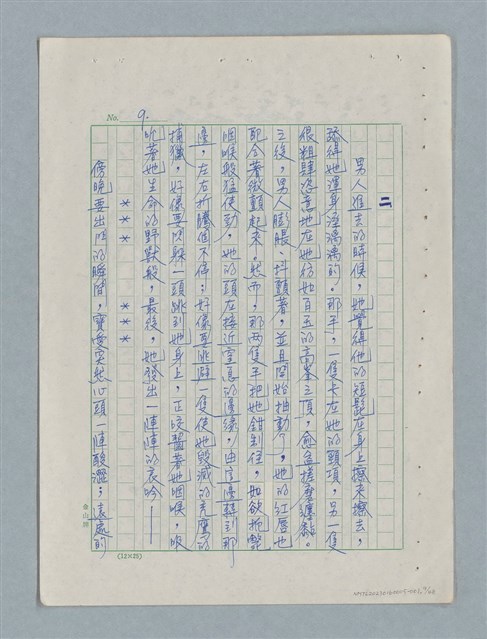 No. 9.
二、
男人進去的時候，她覺得他的短髭在身上擦來擦去，
得她渾身溼漓漓的。那手，一隻卡在她的頸項，另一隻
很粗肆恣意地在她彷如百五的高峯之頂，愈益搓摩纏黏。
之後，男人膨脹、抖顫著，並且開始抽動了，她的紅唇也
配合著微顫起來。然而，那兩隻手把她鉗制住，如欲扼斃
咽喉般猛使勁，她的頭在接近窒息的邊緣，由這邊轉到那
邊，左右折騰個不停；好像要逃避一隻使她毀滅的禿鷹的
捕獵，好像要閃躲一頭跳到她身上，正咬齧著她咽喉，吸
吮著她生命的野獸般，最後，她發出一陣陣的哀吟——
＊＊＊ ＊＊＊
傍晚要出門的瞬間，寶愛突然心頭一陣酸澀；遠處的
(12×25)